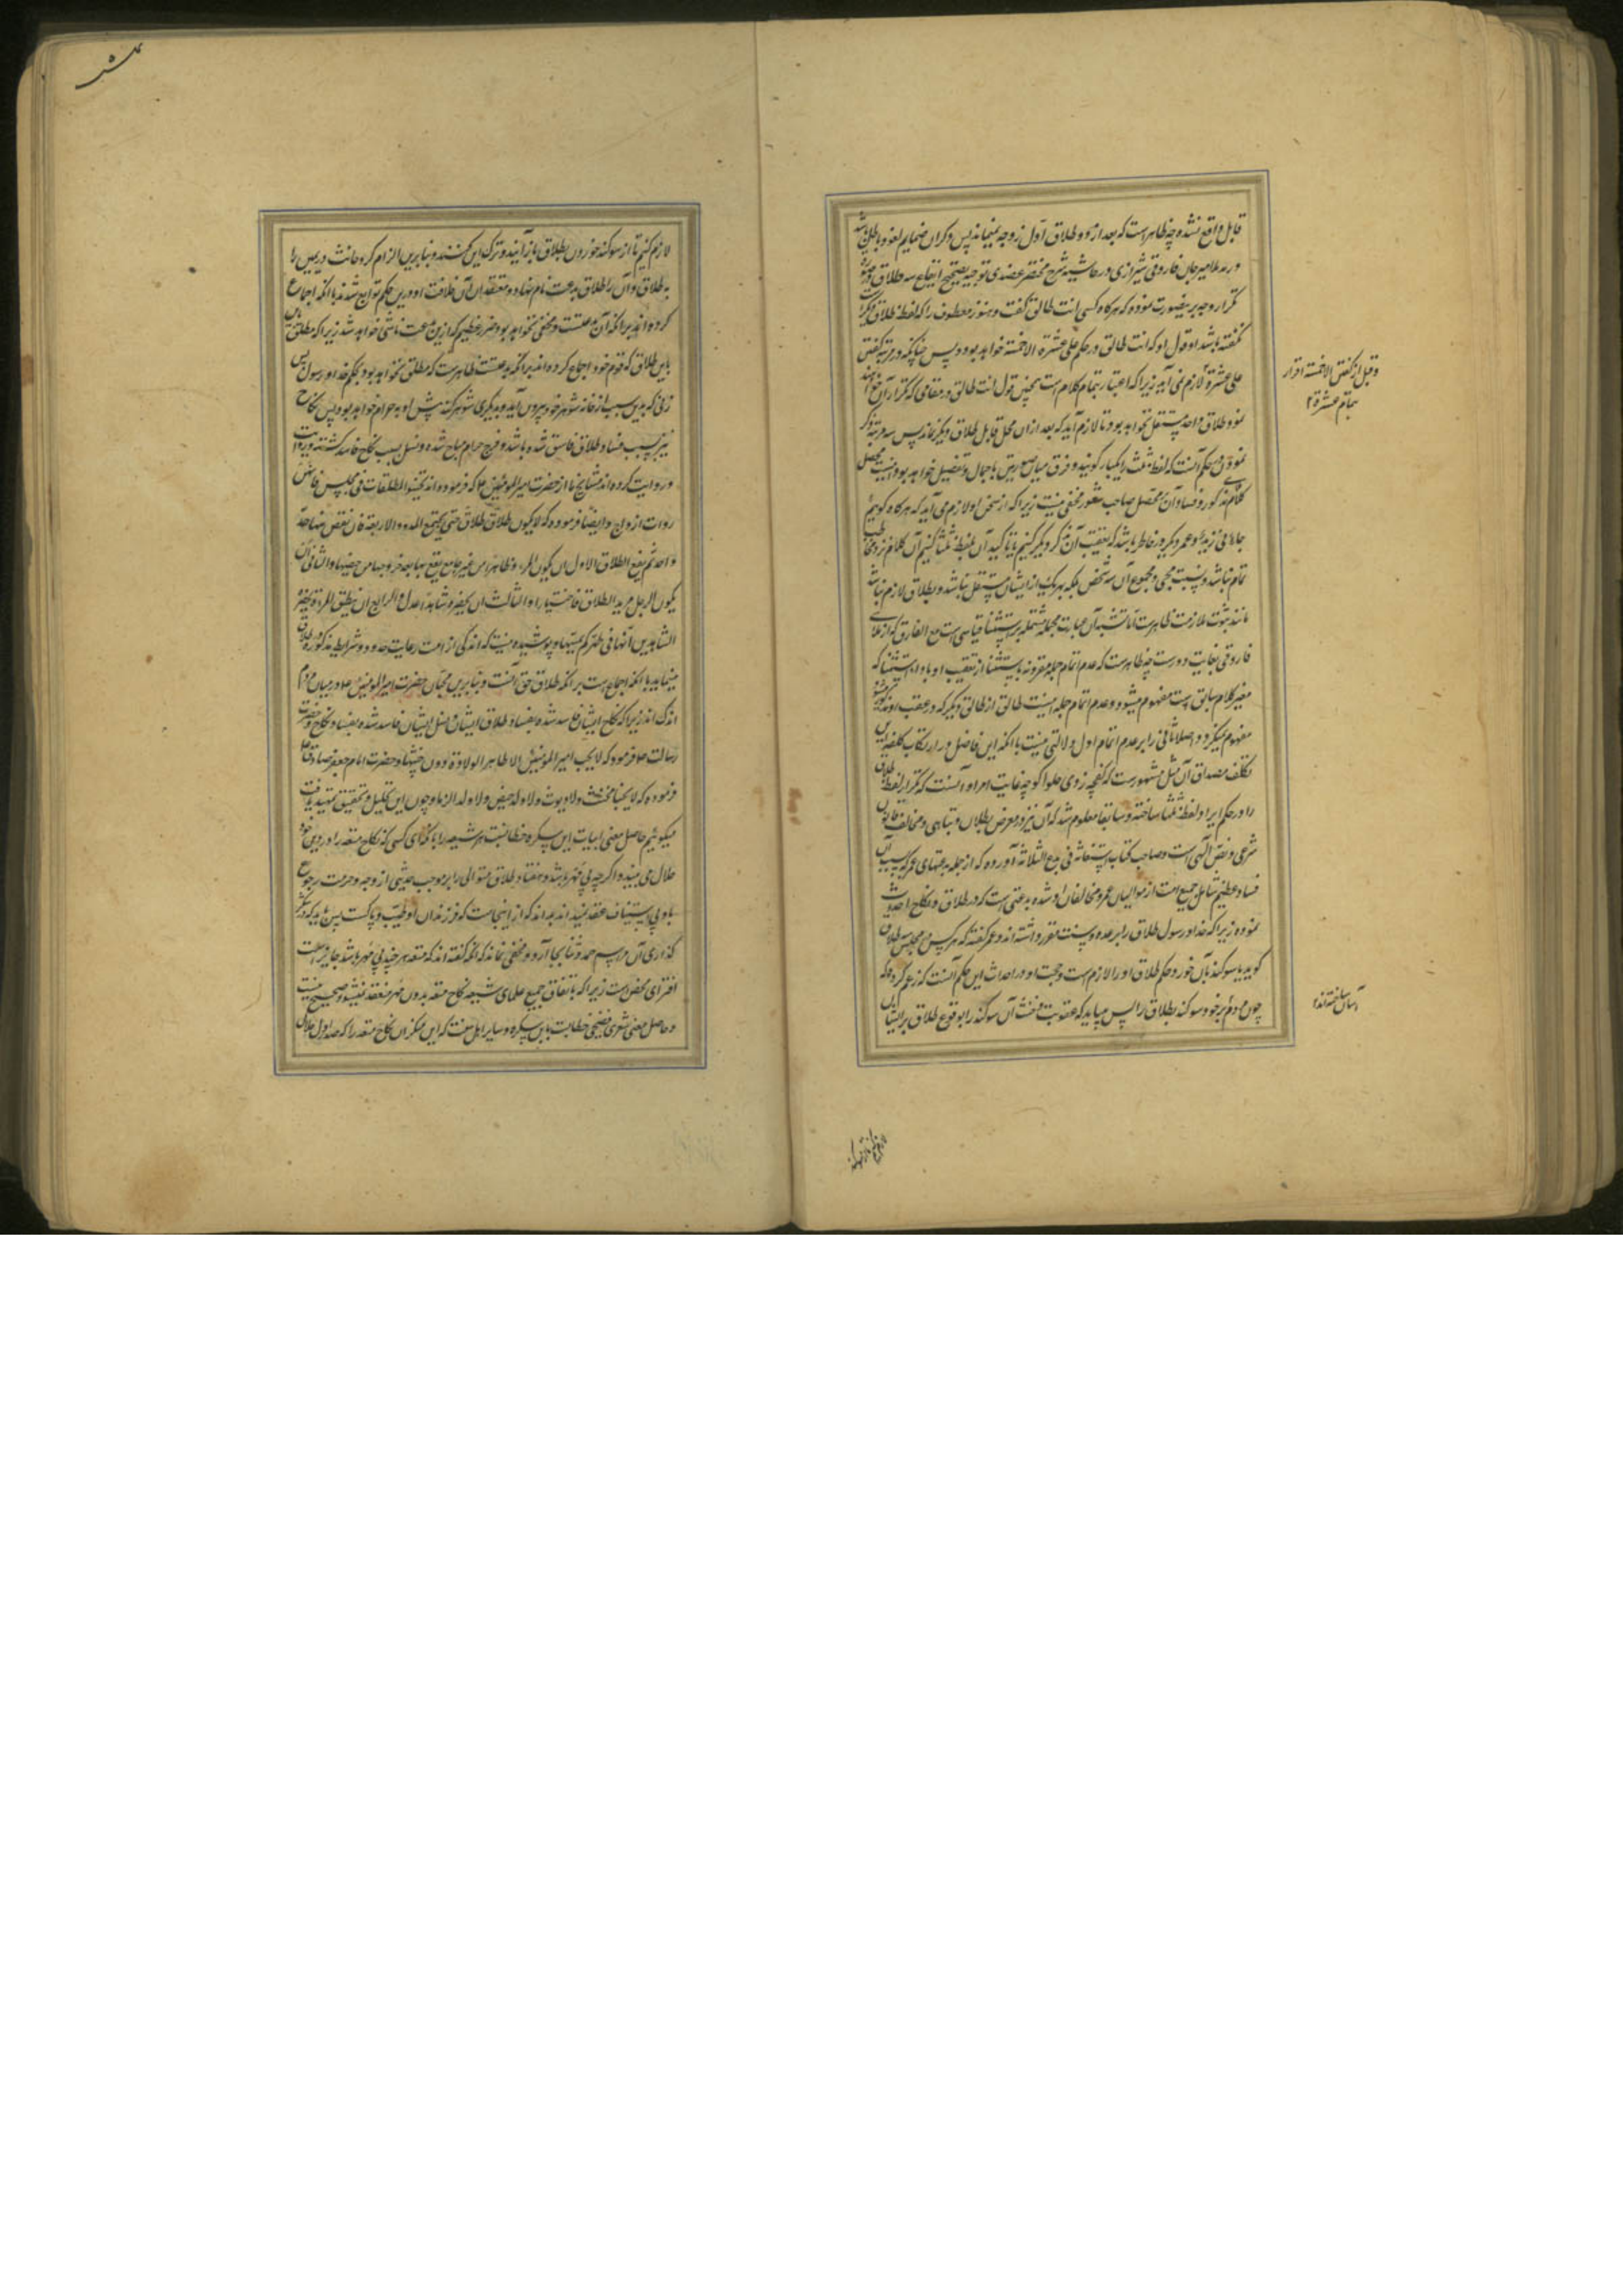 قابل واقع نشده چه ظاهرست که بعد از دو طلاق اول زوجه نمیماند پس دکران ضمایم لغو و باطل باشد
و مر ملا میرجان فاروقی شیرازی در حاشیه شرح مختصر عضدی توجیه تصحیح ایقاع سه طلاق
تکرار وجه بر ینصورت نموده که هرکاه کسی انت طالق گفت و هنوز معطوف را که لفظ طلاق دیگرست
نگفته باشد او قول او که انت طالق در حکم علی عشرة الاخمسة خواهد بود و پس چنانکه در مرتبه گفتن
علی عشرة لازم نمی آید زیرا که اعتبار بتمام کلام است همچنین قول انت طالق در مقامی که تکرار آن خواهند
نمود طلاق واحد مستقل نخواهد بود تا لازم آید که بعد از ان محل قابل طلاق دیگر نماند پس سه مرتبه ذکر
نمودن در حکم آنست که لفظ ثلث را یکبار گویند و فرق میان صورتین باجمال و تفصیل خواهد بود اینست محصل
کلام مذکور و فساد آن بر محصل صاحب شعور مخفی نیست زیرا که از سخن او لازم می آید که هرکاه کوییم
جاءنی زید و عمرو و بکر و در خاطر باشد که بتعقیب آن ذکر دیگر کنیم یا تاکید آن بلفظ ثلثا کنیم آن کلام نزد مخاطب
تمام نباشد و نسبت مجی و مجموع آن سه شخص بلکه بهر یک از ایشان مستقل نباشد و بطلان لازم
مانند ثبوت ملازمت ظاهرست اما تشبیه آن عبارت مجمله مشتمله بر استثنا قیاسی است مع الفارق که از علای
فاروقی بغایت دورست چه ظاهرست که عدم اتمام جمله مقرونه باستثنا از تعقیب او باداة استثنا که
مغیر کلام سابق است مفهوم میشود و عدم اتمام جمله اینست طالق از طالق دیگر که در عقب او مذکور شود
مفهوم نمیکردد و اصلا ثانی را بر عدم اتمام اول دلالتی نیست با انکه این فاضل در ارتکاب کلفه این
تکلف مصداق آن مثل مشهورست که کفچه زدی حلوا کو چه غایت امر او آنست که تکرار لفظ طلاق
را در حکم ایراد لفظ ثلثا ساخته و سابقا معلوم شد که آن نیز در معرض بطلان و تباهی و مخالف قانون
شرعی و نص الهی است و صاحب کتاب استغاثه فی بدع الثلاثه آورده که از جمله بدعتهای عمر که سبب آن
فساد عظیم شامل جمیع امت از موالیان عمر و مخالفان او شده بدعتی است که در طلاق و نکاح احداث
نموده زیرا که خدا و رسول طلاق را بر عده و سنت مقرر داشته اند و عمر گفته که هرکس در مجلس سه طلاق
گوید یا سوگند بآن خورد حکم طلاق او را لازم است و حجت او در احداث این حکم آنست که زعم کرده که
چون مردم بر خود سوکند بطلاق را پس میباید که عقوبت مخنث آن سوکند را بوقوع طلاق بر ایشان
و قبل از گفتن الاخمسة اقرار
بتمام عشرة ۲
آسان ساخته اند
لازم کنیم تا از سوکند خوردن بطلاق باز آیند و ترک این کنند و بنا برین الزام کرد حانث در یمین را
به طلاق و آن را طلاق بدعت نام نهاد و معتقدان آن خلافت او درین حکم تواب شدند با انکه اجماع
کرده اند بر انکه آن بدعتست و مخفی نخواهد بود ضرر عظیم که ازین بدعت ناشی خواهد شد زیرا که مطلق
باین طلاق که قوم خود اجماع کرده اند بر انکه بدعتست ظاهرست که مطلق نخواهد بود بحکم خدا و رسول پس
زنی که بدین سبب از خانه شوهر خود بیرون آید و بدیگری شوهر کند پیش او به حرام خواهد بود پس نکاح
نیز بسبب فساد طلاق فاسق شده باشد و فرج حرام مباح شده و نسل بسبب نکاح فاسد گشته
و روایت کرده اند مشایخ ما از حضرت امیر المومنین علا که فرموده اند تجنبوا المطلقات فی مجلس
روات ازواج و ایضا فرموده که لا یکون طلاق طلاق حتی یجتمع الحدود الاربعة فان نقص منها حد
واحد لم یقع الطلاق الاول ان یکون المرءة طاهرا من غیر جامع یقع بها بعد خروجها من حیضها و الثانی ان
یکون الرجل مرید الطلاق فاختیارا و الثالث ان یحضره شاهدا عدل و الرابع ان یطلق المرءة بحضر
الشاهدین انها فی طهرکم یمسها و پوشیده نیست که اندکی از امت رعایت حدود و شرایط مذکوره طلاق
مینماید با انکه اجماعست بر انکه طلاق حق آنست و بنا برین محبان حضرت امیر المومنین علا در میان مردم
اندک اند زیرا که نکاح ایشان فاسد شده بفساد طلاق ایشان و نسل ایشان فاسد شده بفساد نکاح و حضرت
رسالت صلا فرموده که لا یحب امیر المومنین الا طاهر الولادة دون خبیثها و حضرت امام جعفر صادق علا
فرموده که لا یحبنا مخنث ولا دیوث ولا ولد حیض ولا ولد الزنا و چون این تحلیل و تحقیق تمهید یافت
میگوییم حاصل معنی ابیات این سپکره خطابست هر شیعه را باکه ای کسی که نکاح متعه را در دین خود
حلال می بیند و اکر چه بی مهر باشد و هفتاد طلاق متوالی را بر موجب عدتی از وجه و حرمت رجوع
باو بی استیناف عقد نمیداند بداند که از اینجاست که فرزندان او طیب و پاکست پس باید که شکر
گذاری آن مراسم حمد و ثنا بجا آرد و مخفی نماند که انکه گفته اند که متعه هر چند بی مهر باشد جایز است
افترای محض است زیرا که باتفاق جمیع علمای شیعه نکاح متعه بدون مهر منعقد نمیشود و صحیح نیست
و حاصل معنی شعری فضیحی خطابت باین سپکره و سایر اهل سنت که این منکران نکاح متعه را که صدر اول حلال